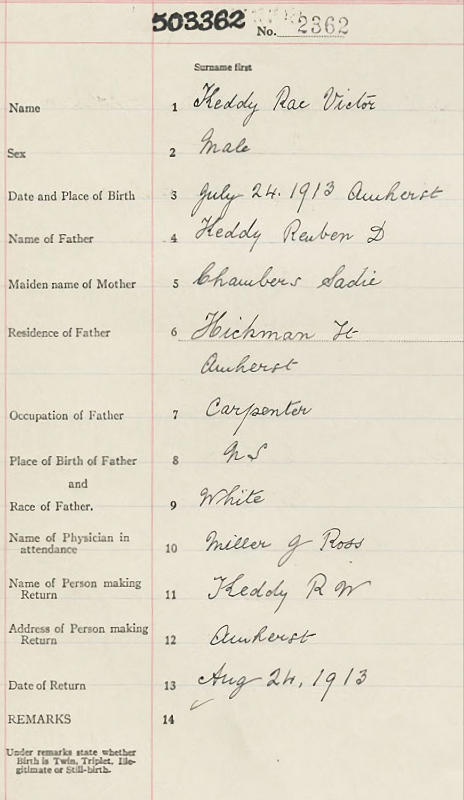 503362 No. 2362
Surname first
Name 1 Keddy Rae Victor
Sex 2 Male
Date and Place of Birth 3 July 24. 1913 Amherst
Name of Father 4 Keddy Reuben D
Maiden name of Mother 5 Chambers Sadie
Residence of Father 6 Hickman St
Amherst
Occupation of Father 7 Carpenter
Place of Birth of Father 8 N S
and
Race of Father. 9 White
Name of Physician in
attendance 10 Miller g Ross
Name of Person making
Return 11 Keddy R W
Address of Person making
Return 12 Amherst
Date of Return 13 Aug 24, 1913
REMARKS 14
Under remarks state whether
Birth is Twin, Triplet, Ille-
gitimate or Still-birth.